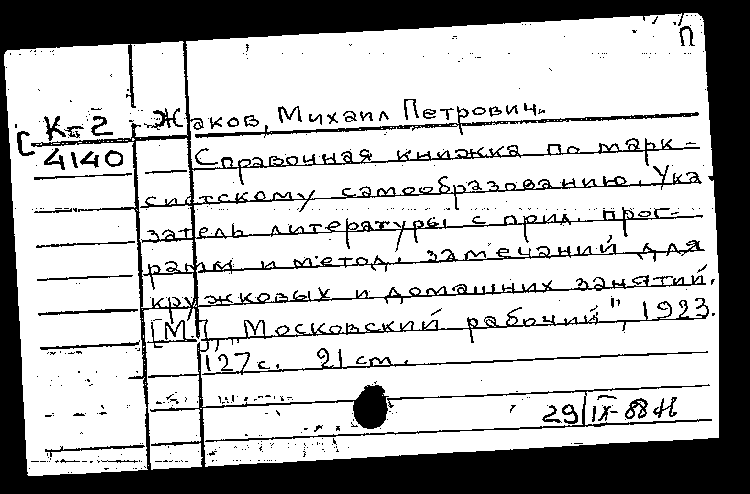 П
К-2 Жаков, Михаил Петрович.
4140 Справочная книжка по марк-
систскому самообразованию. Ука
затель литературы с прил. прог-
рамм и метод. замечаний для
кружковых и домашних занятий.
[М.], "Московский рабочий", 1923.
127с. 21 cm.
29/IX-88